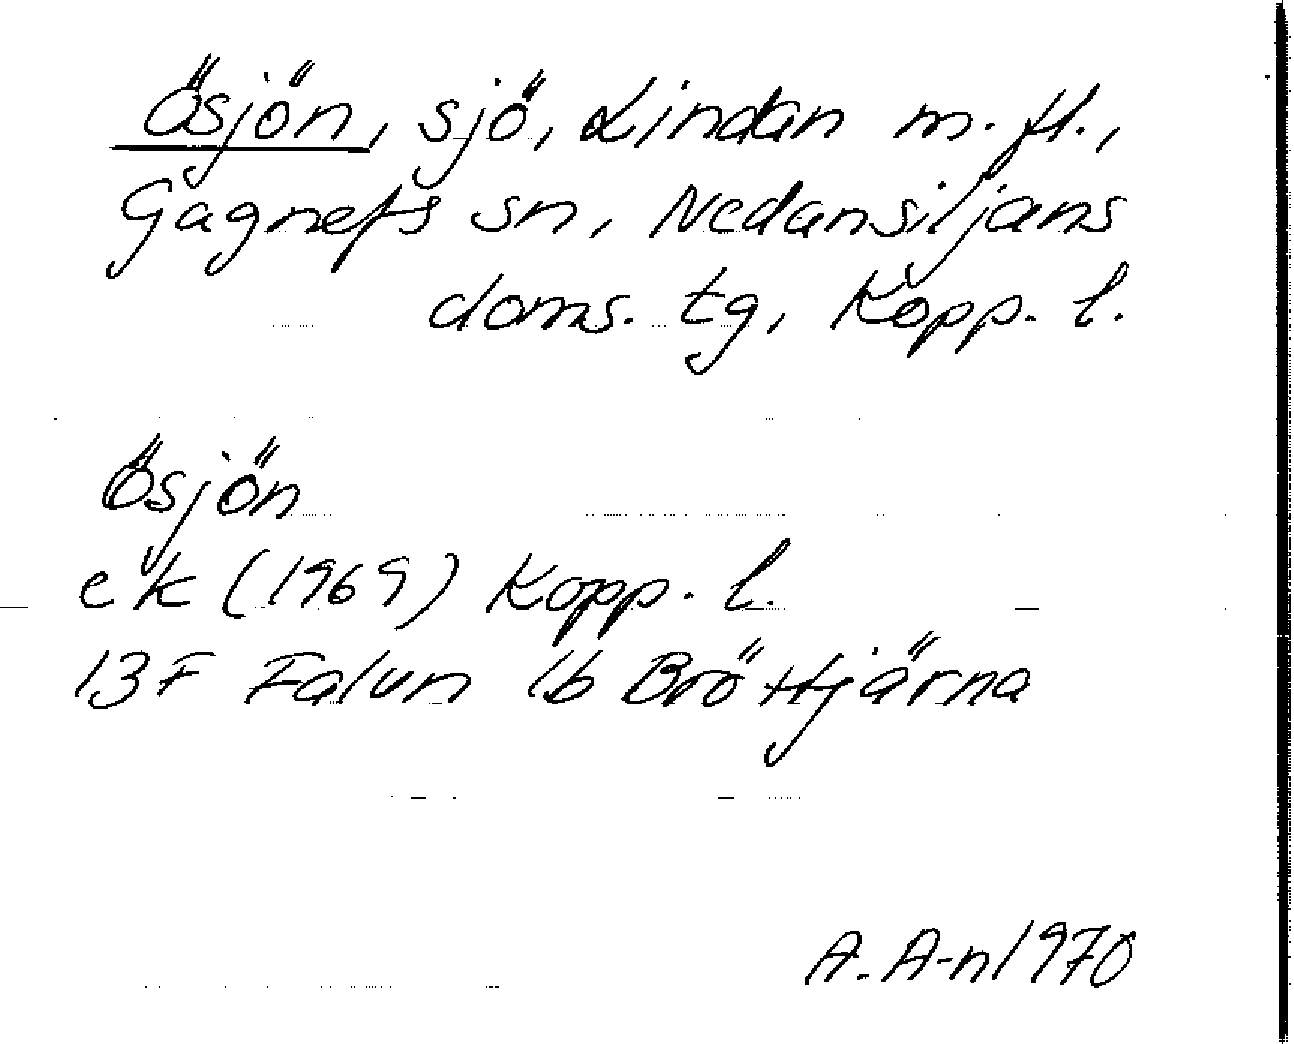 Ösjön, sjö, Lindan m. fl.,
Gagnefs sn, Nedansiljans
doms. tg, Kopp. l.
Ösjön
ek (1969) Kopp. l.
13F Falun 1b Bröttjärna
A. A-n 1970